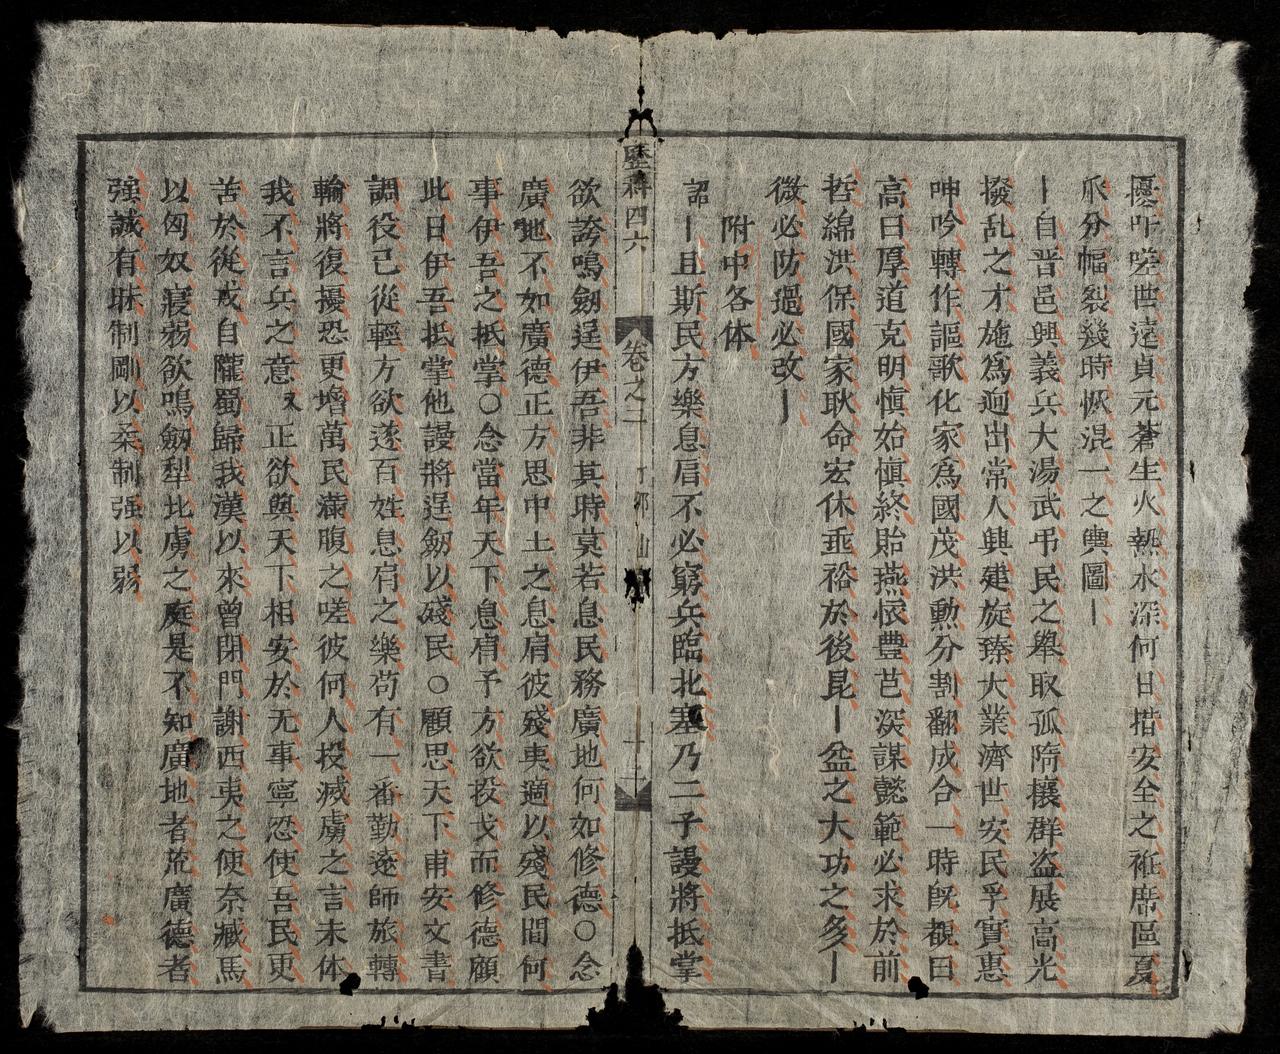 擾吁嗟世遠貞元蒼生火熱水深何日措安全之袵席區夏
瓜分幅裂幾時恢混一之輿圖〡
〡自晋邑興義兵大湯武弔民之舉取孤隋攘群盗展高光
撥乱之才施爲迥出常人興建旋臻大業濟世安民孚實惠
呻吟轉作謳歌化家為國茂洪勲分割翻成合一時旣覩曰
高曰厚道克明愼始愼終貽燕懷豊芑深謀懿範必求於前
哲綿洪保國家耿命宏休垂裕於後昆〡盆之大功之多〡
微必防過必改〡
附中各体
詔〡且斯民方樂息肩不必窮兵臨北塞乃二子謾將抵掌
欲誇鳴劔逞伊吾非其時莫若息民務廣地何如修德〇念
廣地不如廣德正方思中土之息肩彼殘夷適以殘民間何
事伊吾之抵掌〇念當年天下息肩予方欲投戈而修德顧
此日伊吾抵掌他謾將逞劔以殘民〇顧思天下甫安文書
調役已從輕方欲遂百姓息肩之樂苟有一番勤遠師旅轉
輸將復擾恐更增萬民滿腹之嗟彼何人投滅虜之言未体
我不言兵之意又正欲與天下相安於无事寧忍使吾民更
苦於從戎自隴蜀歸我漢以來曾閉門謝西夷之使奈臧馬
以匈奴寢弱欲鳴劔犁北虜之庭是不知廣地者荒廣德者
强誠有昧制剛以柔制强以弱
歷科四六
卷之二